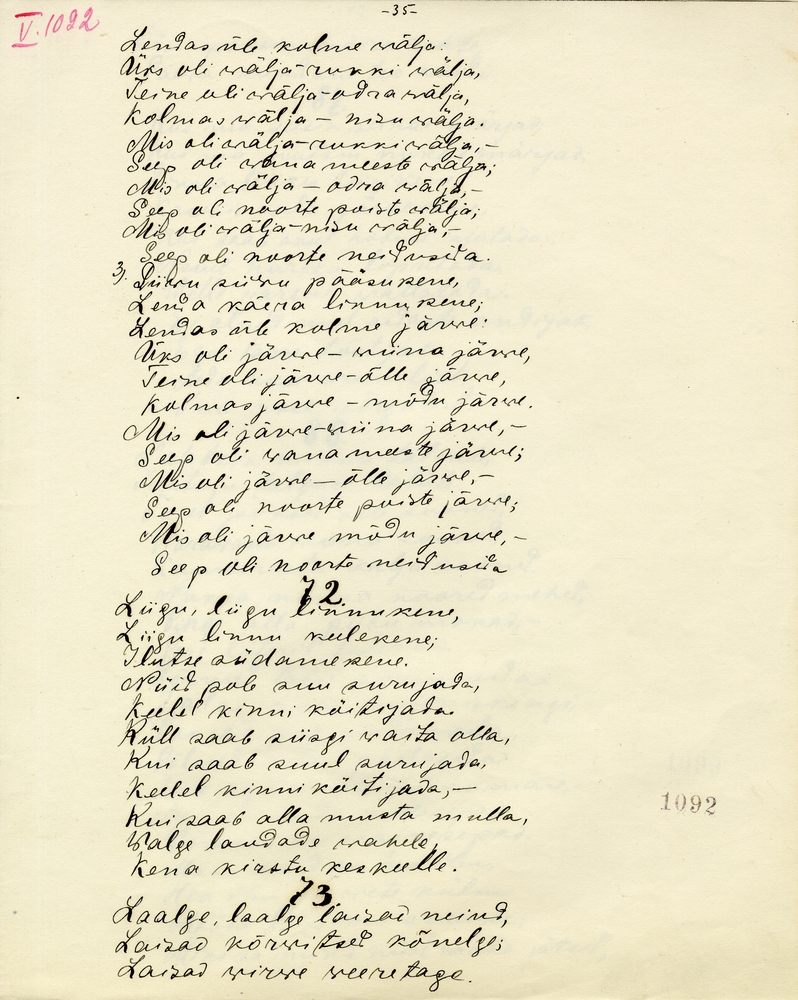 -35-
V. 1092
Lendas üle kolme wälja:
Üks oli wälja-rukki wälja,
Teine oli wälja-odra wälja,
Kolmas wälja - nisu wälja.
Mis oli wälja-rukki wälja,-
Seep oli wana meeste wälja;
Mis oli wälja - odra wälja,-
Seep oli noorte poiste wälja;
Mis oli wälja-nisu wälja,-
Seep oli noorte neidusida.
3). Siiwu siiwu pääsukene,
Lenda käera linnukene;
Lendas üle kolme järwe:
Üks oli järwe-wiina järwe,
Teine oli järwe-õlle järwe,
Kolmas järwe - mõdu järwe.
Mis oli järwe-wiina järwe,-
Seep oli wana meeste järwe;
Mis oli järwe - õlle järwe,-
Seep oli noorte poiste järwe;
Mis oli järwe mõdu järwe,-
Seep oli noorte neidusida
72.
Liigu, liigu linnukene,
Liigu linnu keelekene;
Ilutse südamekene.
Nüid pole suu surujada,
Keelel kinni köitijada.
Küll saab siisgi waita olla,
Kui saab suul surujada,
Keelel kinni köitijada,-
Kui saab alla musta mulla,
Walge laudade wahele,
Kena kirstu keskeelle.
73.
Laalge, laalge laisad neiud,
Laisad kõrwitsed kõnelge;
Laisad wirwe weeretage.
1092